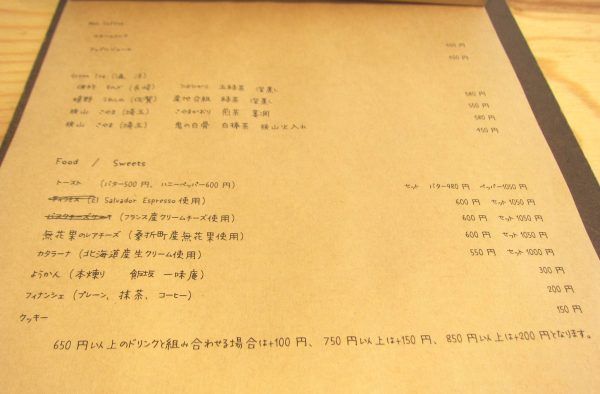 Non Caffeine
アップルジュース
450 円
Green Tea (温 冷)
580 円
嬉野 うれしの (佐賀) 産地合組 緑茶 深蒸し 550 円
狭山 さやま (埼玉) さやまかおり 煎茶 580 円
狭山 さやま (埼玉) 鬼の白骨 白棒茶 狭山火入れ 450 円
Food / Sweets
トースト (バター500円、ハニーペッパー600円) セット バター980円 ペッパー1050円
ティラミス (El Salvador Espresso使用) 600円 セット1050円
バスクチーズケーキ (フランス産クリームチーズ使用) 600円 セット1050円
無花果のレアチーズ (桑折町産無花果使用) 600円 セット1050円
カタラーナ (北海道産生クリーム使用) 550円 セット1000円
ようかん (本煉り 飯坂 一味庵) 300円
フィナンシェ (プレーン、抹茶、コーヒー) 200円
クッキー 150円
650円以上のドリンクと組み合わせる場合は+100円、750円以上は+150円、850円以上は+200円となります。